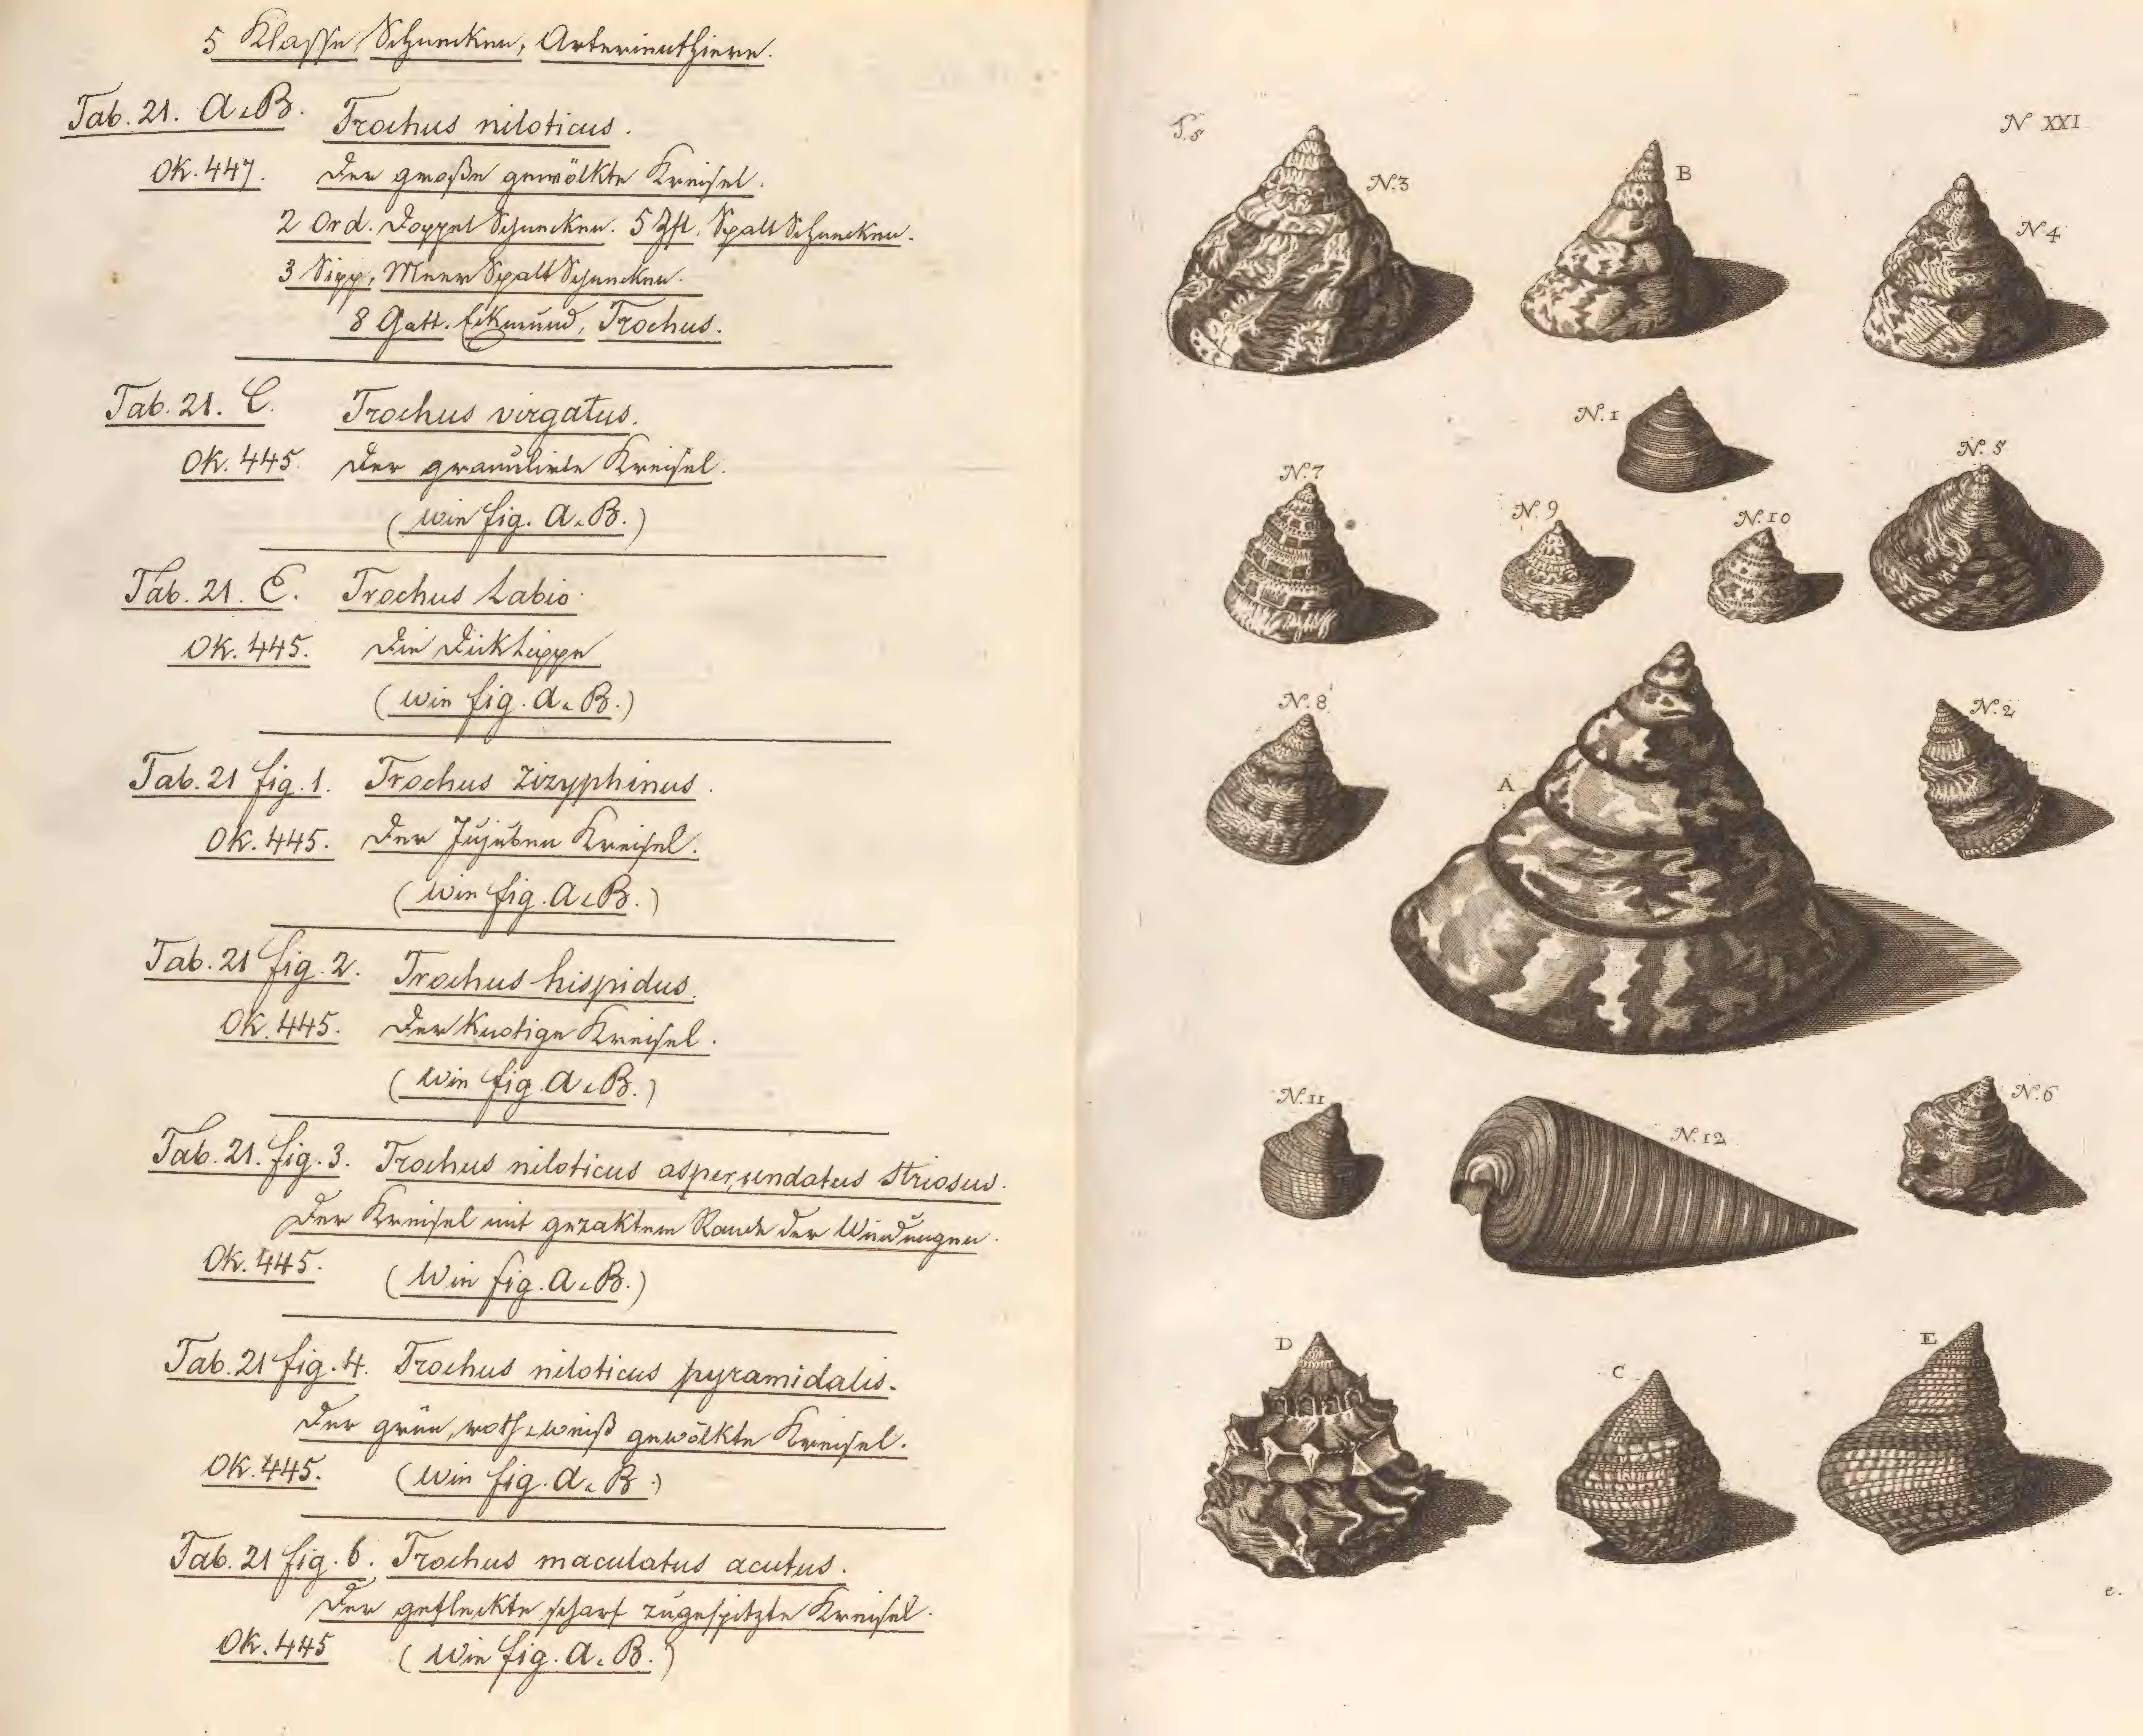 5 Klasse, Schnecken, Arterienthiere.
Tab. 21. A. B. Trochus niloticus.
Ok. 447. Der große gewölkte Kreisel.
2 Ord. Doppel Schnecken. 5 Zft. Spalt Schnecken.
3 Sipp, Meer Spalt Schnecken.
8 Gatt. Eckmund, Trochus.
Tab. 21. C. Trochus virgatus.
Ok. 445. Der granulirte Kreisel.
(wie fig. A. B.)
Tab. 21. E. Trochus Labio.
Ok. 445. Die Dicklippe
(wie fig. A. B.)
Tab. 21 fig. 1. Trochus zizyphinus.
Ok. 445. Der Jujuben Kreisel.
(wie fig. A. B.)
Tab. 21 fig. 2. Trochus hispidus.
Ok. 445. Der knotige Kreisel.
(wie fig. A. B.)
Tab. 21. fig. 3. Trochus niloticus asper, undatus striosus.
Der Kreisel mit gezaktem Rande der Windungen.
Ok. 445. (Wie fig. A. B.)
Tab. 21 fig. 4. Trochus niloticus pyramidalis.
Der grün, roth & weiß gewölkte Kreisel.
Ok. 445. (wie fig. A. B.)
Tab. 21 fig. 6. Trochus maculatus acutus.
Der gefleckte scharf zugespitzte Kreisel.
Ok. 445 (Wie fig. A. B.)
N XXI
N. 3
B
N 4
N. 1
N. 5
N. 7
N. 9
N. 10
N. 8
N. 2
A
N. 11
N. 12
N. 6
D
C
E
e.